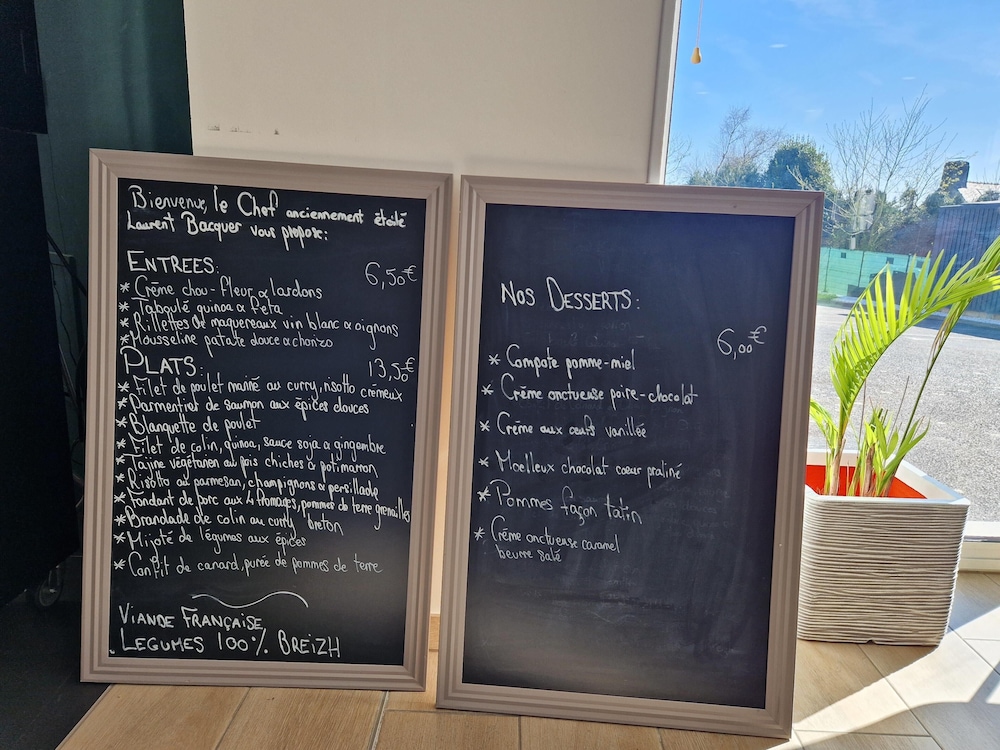 Bienvenue, le Chef anciennement étoilé
Laurent Bacquer vous propose:
ENTREES:
6,50€
* Crème chou-fleur & lardons
* Taboulé quinoa & feta
* Rillettes de maquereaux vin blanc & oignons
* Mousseline patate douce & chorizo
PLATS:
13,50€
* Filet de poulet mariné au curry, risotto crémeux
* Parmentier de saumon aux épices douces
* Blanquette de poulet
* Filet de colin, quinoa, sauce soja & gingembre
* Tajine végétarien aux pois chiches & potimarron
* Risotto au parmesan, champignons & persillade
* Fondant de porc aux 4 fromages, pommes de terre grenailles
* Brandade de colin au curry breton
* Mijoté de légumes aux épices
* Confit de canard, purée de pommes de terre
VIANDE FRANÇAISE,
LEGUMES 100% BREIZH
NOS DESSERTS:
6,00€
* Compote pomme-miel
* Crème onctueuse poire-chocolat
* Crème aux œufs vanillée
* Moelleux chocolat cœur praliné
* Pommes façon tatin
* Crème onctueuse caramel
beurre salé